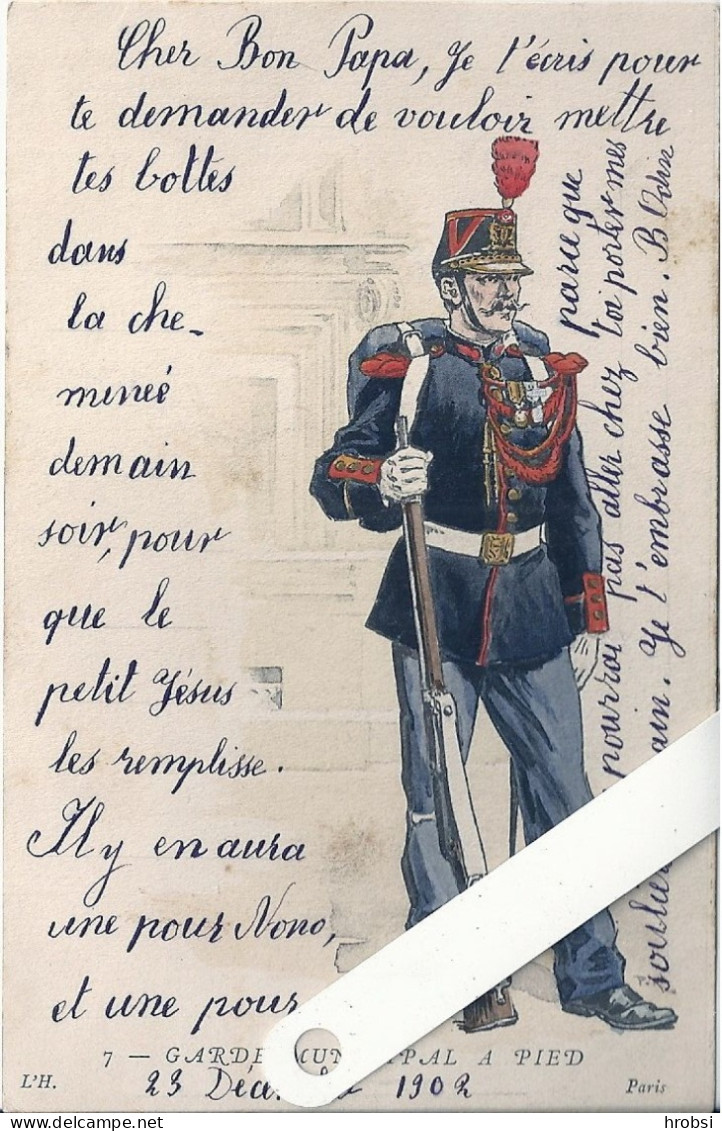 Cher Bon Papa, Je t'écris pour
te demander de vouloir mettre
tes bottes
dans
la che-
mineé
demain
soir, pour
que le
petit Jésus
les remplisse.
Il y en aura
une pour Nono,
et une pour
parce que
pourrai pas aller chez toi porter mes
soulie ain. Je t'embrasse bien. B
7 — GARDE MUNICIPAL A PIED
L'H.
23 Décembre 1902
Paris
hrobsi